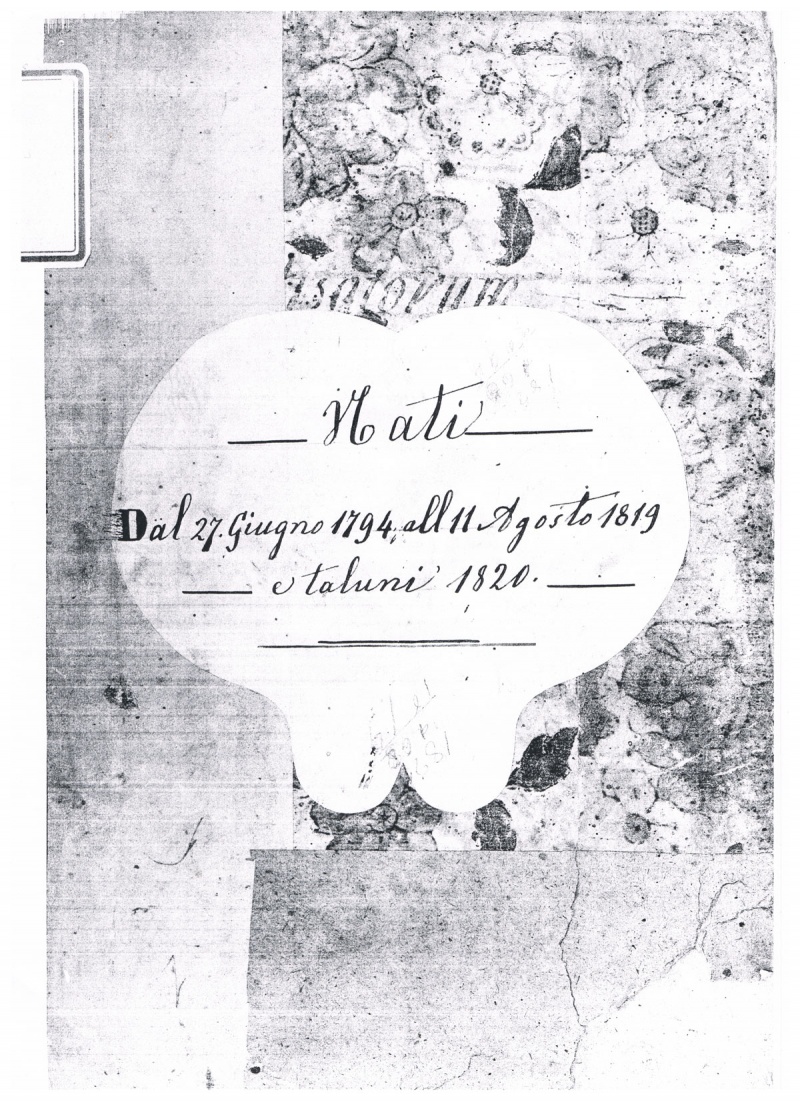 Nati
Dal 27. Giugno 1794, all 11 Agosto 1819
e taluni 1820.